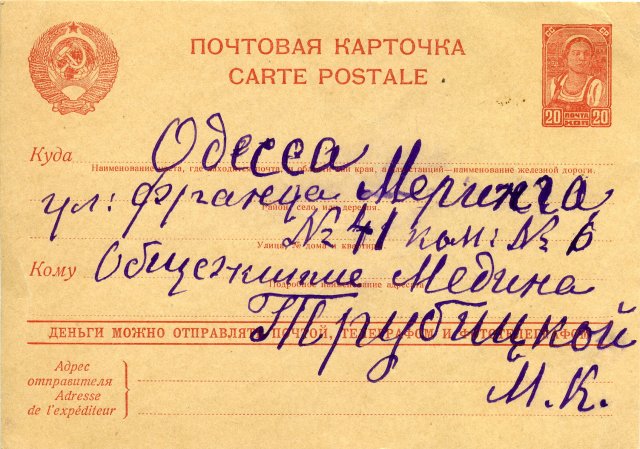 ПОЧТОВАЯ КАРТОЧКА
CARTE POSTALE
СС СР
20 ПОЧТА 20
КОП
Куда Одесса
Наименование места, где находится почта, а для станций—наименование железной дороги.
ул: Франца Меринга
Район, село, или деревня.
№ 41 ком: № 6
Улица, № дома и квартиры
Кому Общежитие Медина
Подробное наименование адресата
Трубицкой
ДЕНЬГИ МОЖНО ОТПРАВЛЯТЬ ПОЧТОЙ, ТЕЛЕГРАФОМ И ФОТОТЕЛЕГРАФОМ
М.К.
Адрес
отправителя
Adresse
de l'expéditeur